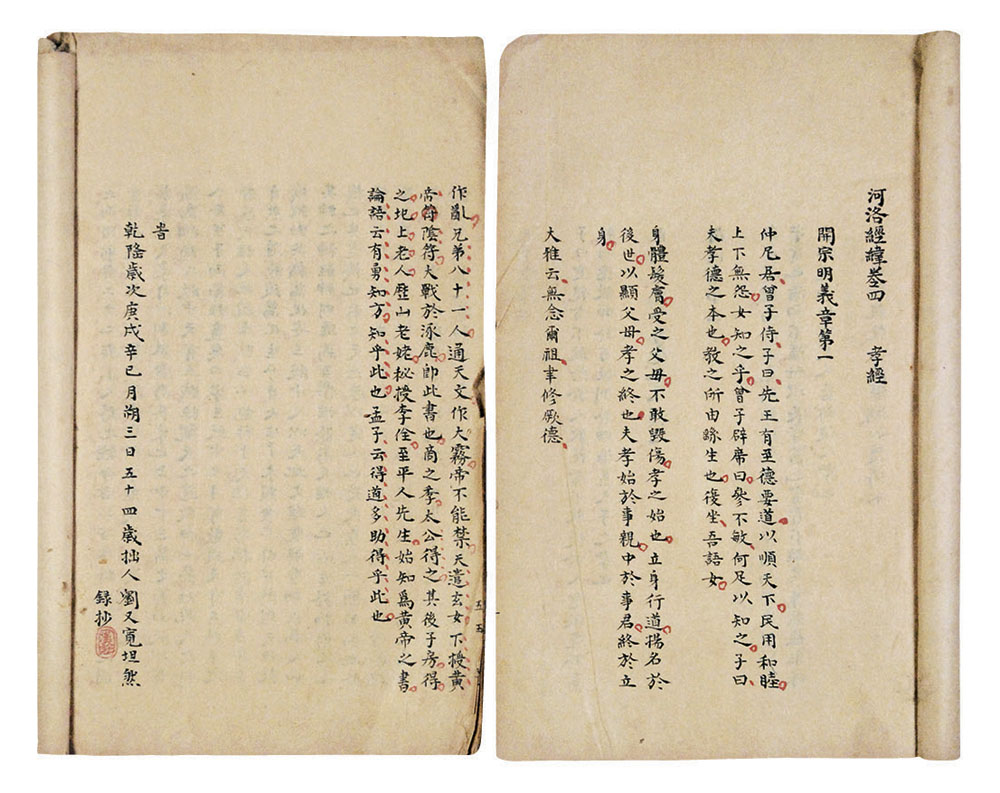 河洛經緯卷四 孝經
開宗明義章第一
仲尼居曾子侍子曰先王有至德要道以順天下民用和睦
上下無怨女知之乎曾子辟席曰參不敏何足以知之子曰
夫孝德之本也教之所由繇生也復坐吾語女
身體髮膚受之父母不敢毀傷孝之始也立身行道揚名於
後世以顯父母孝之終也夫孝始於事親中於事君終於立
身
大雅云無念爾祖聿修厥德
作亂兄第八十一人通天文作大霧帝不能禁天遣玄女下授黃
帝符陰符大戰於涿鹿即此書也商之季太公得之其後子房得
之圯上老人歷山老姥秘授李佺至平人先生始知為黃帝之書
論語云有勇知方知乎此也孟子云得道多助得乎此也
五五
旹
乾隆歲次庚戌辛巳月朔三日五十四歲拙人劉又寬坦然
錄抄